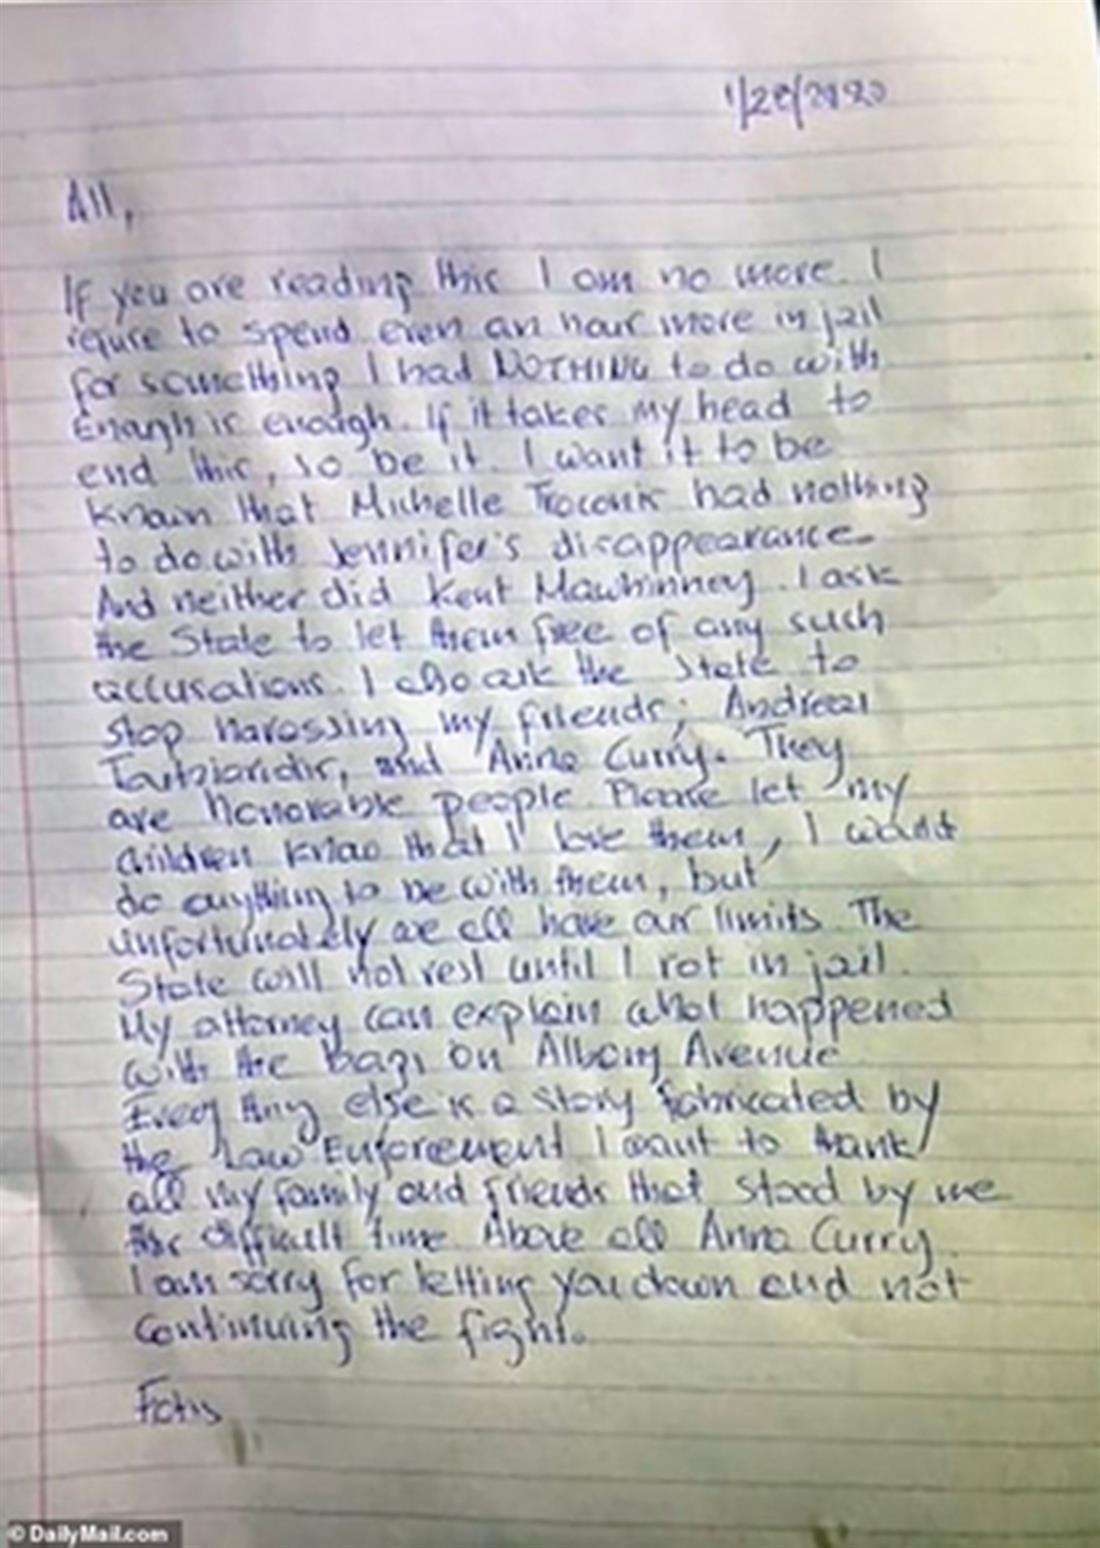 1/28/2020
All,
If you are reading this I am no more. I
refuse to spend even an hour more in jail
for something I had NOTHING to do with
Enough is enough. If it takes my head to
end this, so be it. I want it to be
known that Michelle Troconis had nothing
to do with Jennifer's disappearance.
And neither did Kent Mawhinney. I ask
the State to let them free of any such
accusations. I also ask the State to
stop harassing my friends; Andreas
Toutziaridis, and Anna Curry. They
are honorable people. Please let my
children know that I love them, I would
do anything to be with them, but
unfortunately we all have our limits. The
State will not rest until I rot in jail.
My attorney can explain what happened
with the bags on Albany Avenue
Every thing else is a story fabricated by
the Law Enforcement I want to thank
all my family and friends that stood by me
this difficult time Above all Anna Curry.
I am sorry for letting you down and not
continuing the fight.
Fotis
© DailyMail.com